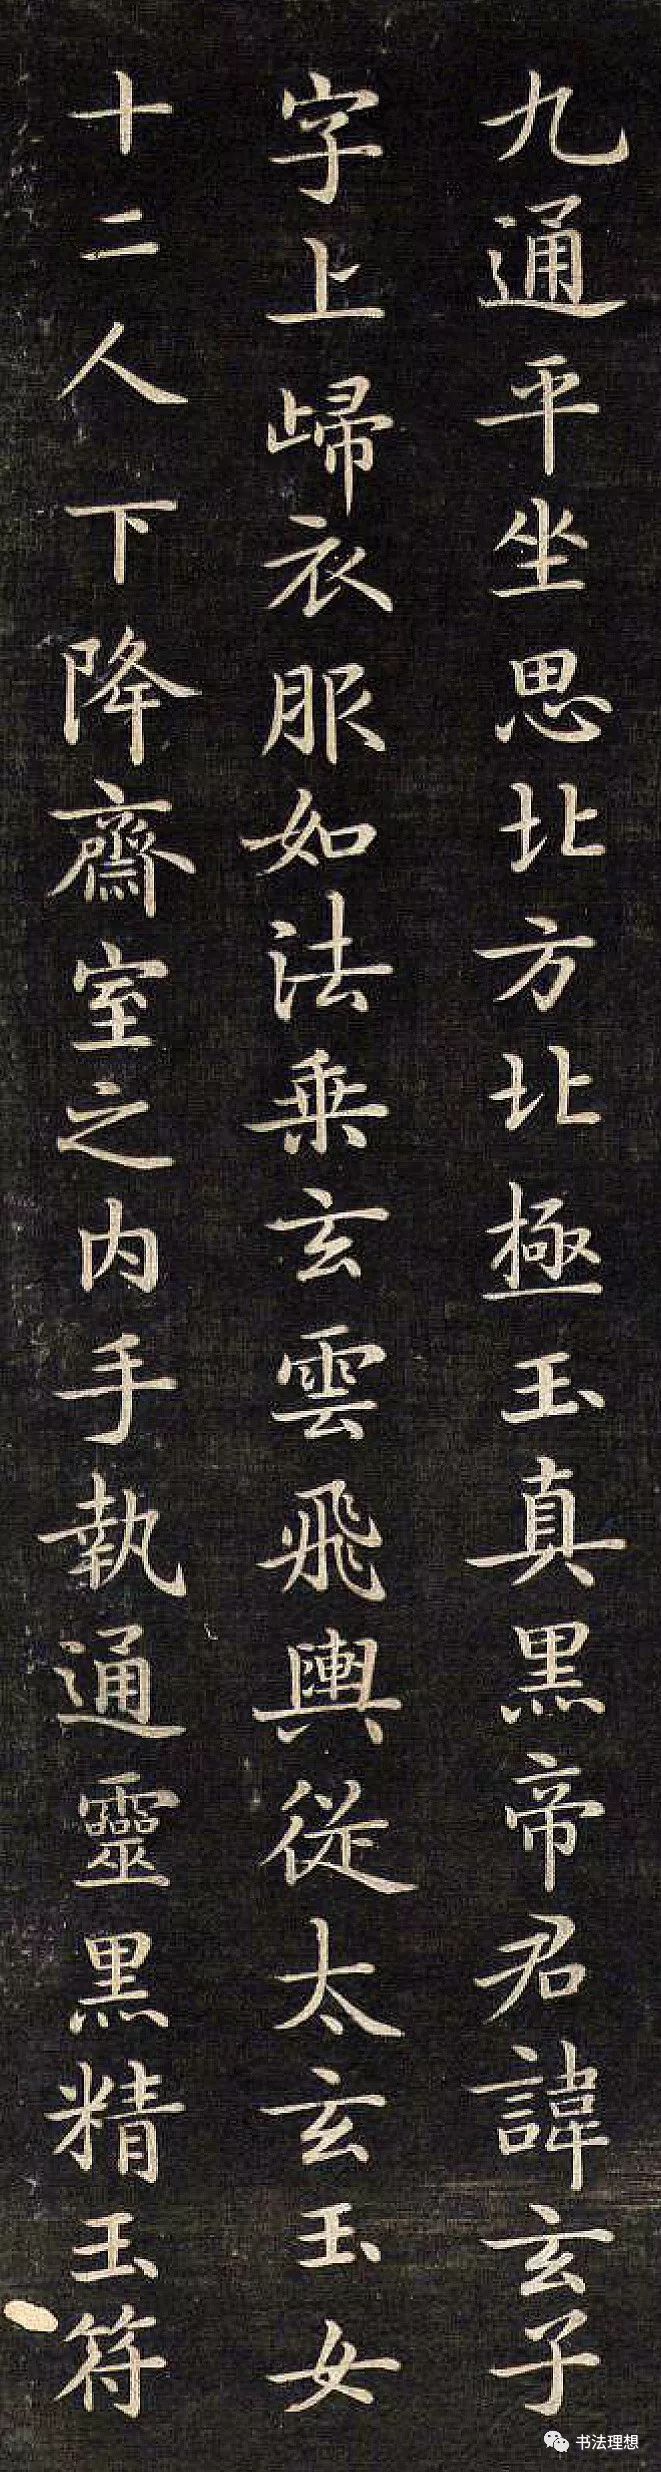 九通平坐思北方北極玉真黒帝君諱玄子
字上歸衣服如法乗玄雲飛輿從太玄玉女
十二人下降齋室之内手執通靈黒精玉符
书法理想